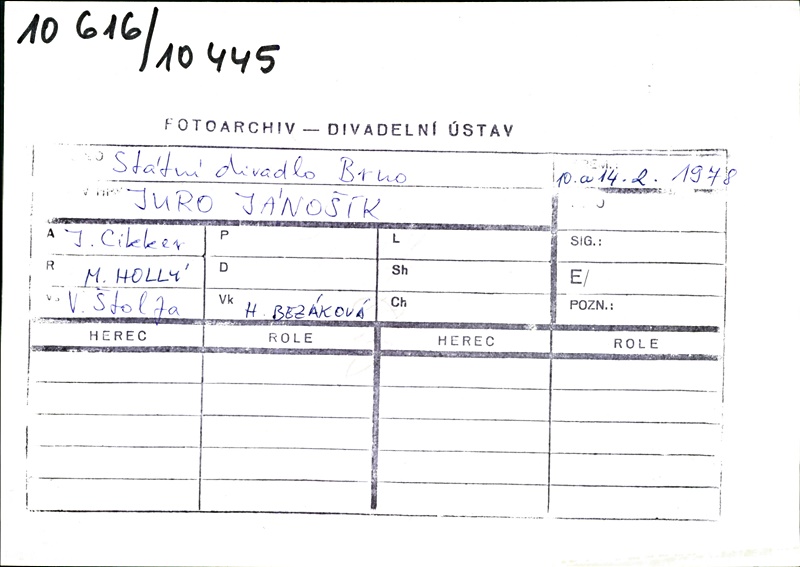 10 616/
10 445
FOTOARCHIV — DIVADELNÍ ÚSTAV
Státní divadlo Brno
10. a 14. 2. 1978
JURO JÁNOŠÍK
A J. Cikker P L SIG.:
R M. HOLLÝ D Sh E/
V. Štolfa Vk H. BEZÁKOVÁ Ch POZN.:
HEREC ROLE HEREC ROLE